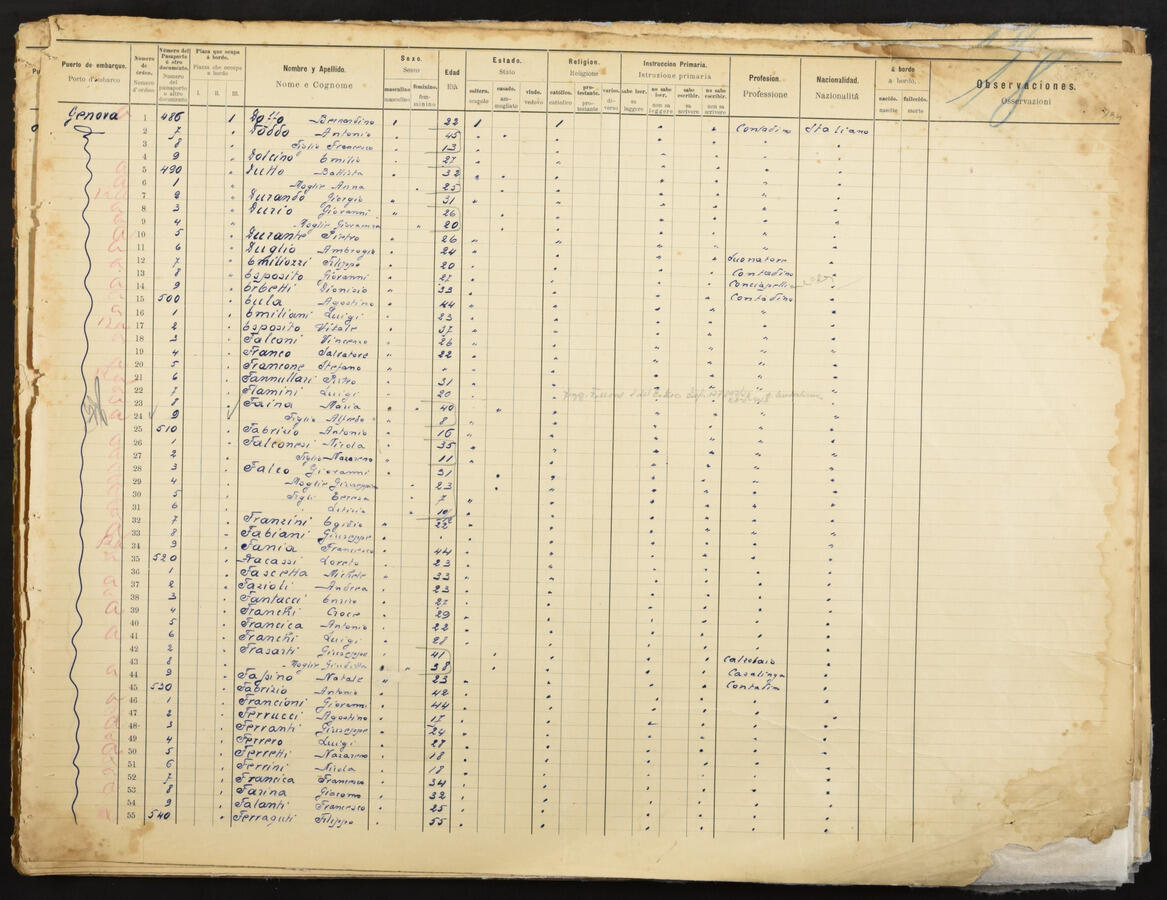 Puerto de embarque. Porto d'embarco
Número de órden. Numero d'ordine
Número del Pasaporte ú otro documento. Numero del passaporto o altro documento
Plaza que ocupa á bordo. Piazza che occupa a bordo
I. II. III.
Nombre y Apellido. Nome e Cognome
Sexo. Sesso
masculino maschino femenino. femminino
Edad Età
Estado. Stato
soltero. scapolo casado. ammogliato viudo. vedovo
Religion. Religione
católico. cattolico protestante. protestante varios. diverso
Instruccion Primaria. Istruzione primaria
sabe leer. sa leggere no sabe leer. non sa leggere sabe escribir. sa scrivere no sabe escribir. non sa scrivere
Profesion. Professione
Nacionalidad. Nazionalità
á bordo a bordo.
nacido. nascito fallecido. morto
Observaciones. Osservazioni
Genova 1 486 1 Dotto Bernardino 22 Contadino Italiano
2 7 Doddo Antonio 45
3 8 Figlio Francesco 13
4 9 Dolcino Emilio 27
5 490 Dutto Battista 32
6 1 Moglie Anna 25
7 2 Durando Giorgio 31
8 3 Durio Giovanni 26
9 4 Moglie Giovanna 20
10 5 Durante Pietro 26
11 6 Duglio Ambrogio 24
12 7 Emiliozzi Filippo 20 Suonatore
13 8 Esposito Giovanni 27 Contadino
14 9 Erbetti Dionisio 33
15 500 Eula Agostino 44 Contadino
16 1 Emiliani Luigi 23
17 2 Esposito Vitale 37
18 3 Falconi Vincenzo 26
19 4 Franco Salvatore 22
20 5 Francone Stefano "
21 6 Fannullari Pietro 31
22 7 Flamini Luigi 20
23 8 Faina Maria 40
24 9 Figlio Alfredo 8
25 510 Fabrizio Antonio 16
26 1 Falconesi Nicola 35
27 2 Figlio Nazareno 11
28 3 Falco Giovanni 31
29 4 Moglie Giuseppa 23
30 5 Figli Teresa 7
31 6 " Letizia 10
32 7 Franzini Egidio 22
33 8 Fabiani Giuseppe
34 9 Fania Francesco 44
35 520 Fracassi Loreto 23
36 1 Fascetta Michele 33
37 2 Fazioli Andrea 23
38 3 Fantacci Enrico 27
39 4 Franchi Croce 29
40 5 Francica Antonio 22
41 6 Franchi Luigi 28
42 7 Frasarti Giuseppe 41
43 8 Moglie Giuditta 38 Calzolaio
44 9 Faspino Natale 23 Casalinga
45 530 Fabrizio Antonio 42 Contadin
46 1 Francioni Giovanni 44
47 2 Ferrucci Agostino 17
48 3 Ferranti Giuseppe 24
49 4 Ferrero Luigi 27
50 5 Ferretti Nazareno 18
51 6 Ferrini Nicola 18
52 7 Francica Francesco 34
53 8 Farina Giacomo 32
54 9 Falanti Francesco 25
55 540 Ferraguti Filippo 55